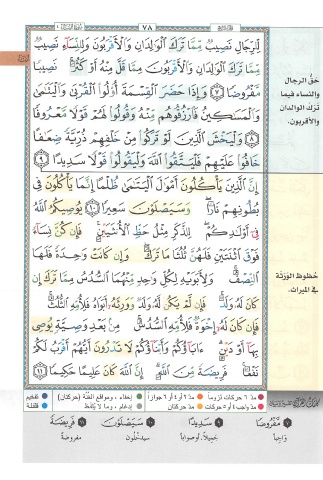 ٧٨
لِّلرِّجَالِ نَصِيبٌ مِّمَّا تَرَكَ الْوَالِدَانِ وَالْأَقْرَبُونَ وَلِلنِّسَاءِ نَصِيبٌ
مِّمَّا تَرَكَ الْوَالِدَانِ وَالْأَقْرَبُونَ مِمَّا قَلَّ مِنْهُ أَوْ كَثُرَ ۚ نَصِيبًا
مَّفْرُوضًا ٧ وَإِذَا حَضَرَ الْقِسْمَةَ أُولُوا الْقُرْبَىٰ وَالْيَتَامَىٰ
وَالْمَسَاكِينُ فَارْزُقُوهُم مِّنْهُ وَقُولُوا لَهُمْ قَوْلًا مَّعْرُوفًا
٨ وَلْيَخْشَ الَّذِينَ لَوْ تَرَكُوا مِنْ خَلْفِهِمْ ذُرِّيَّةً ضِعَافًا
خَافُوا عَلَيْهِمْ فَلْيَتَّقُوا اللَّهَ وَلْيَقُولُوا قَوْلًا سَدِيدًا ٩
إِنَّ الَّذِينَ يَأْكُلُونَ أَمْوَالَ الْيَتَامَىٰ ظُلْمًا إِنَّمَا يَأْكُلُونَ فِي
بُطُونِهِمْ نَارًا ۖ وَسَيَصْلَوْنَ سَعِيرًا ١٠ يُوصِيكُمُ اللَّهُ
فِي أَوْلَادِكُمْ ۖ لِلذَّكَرِ مِثْلُ حَظِّ الْأُنثَيَيْنِ ۚ فَإِن كُنَّ نِسَاءً
فَوْقَ اثْنَتَيْنِ فَلَهُنَّ ثُلُثَا مَا تَرَكَ ۖ وَإِن كَانَتْ وَاحِدَةً فَلَهَا
النِّصْفُ ۚ وَلِأَبَوَيْهِ لِكُلِّ وَاحِدٍ مِّنْهُمَا السُّدُسُ مِمَّا تَرَكَ إِن
كَانَ لَهُ وَلَدٌ ۚ فَإِن لَّمْ يَكُن لَّهُ وَلَدٌ وَوَرِثَهُ أَبَوَاهُ فَلِأُمِّهِ الثُّلُثُ ۚ
فَإِن كَانَ لَهُ إِخْوَةٌ فَلِأُمِّهِ السُّدُسُ ۚ مِن بَعْدِ وَصِيَّةٍ يُوصِي
بِهَا أَوْ دَيْنٍ ۗ آبَاؤُكُمْ وَأَبْنَاؤُكُمْ لَا تَدْرُونَ أَيُّهُمْ أَقْرَبُ لَكُمْ
نَفْعًا ۚ فَرِيضَةً مِّنَ اللَّهِ ۗ إِنَّ اللَّهَ كَانَ عَلِيمًا حَكِيمًا ١١
حقّ الرجال
والنساء فيما
ترك الوالدان
والأقربون.
حظوظ الورَثة
في الميراث.
مدّ ٦ حركات لزوماً
مدّ ٢ أو ٤ أو ٦ جوازاً
إخفاء، ومواقع الغنّة (حركتان)
تفخيم
مدّ واجب ٤ أو ٥ حركات
مدّ حركتان
إدغام، وما لا يُلفظ
قلقلة
٧ مَّفْرُوضًا
واجباً
٩ سَدِيدًا
جميلاً، أو صواباً
١٠ سَيَصْلَوْنَ
سيدخُلون
١١ فَرِيضَةً
مفروضة